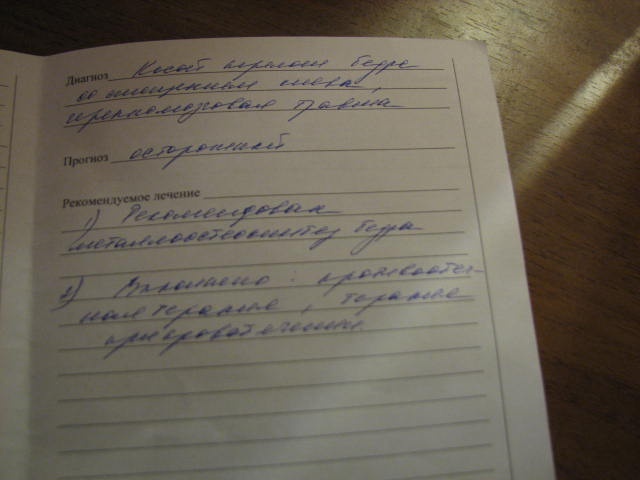 Диагноз Косой перелом бедра
со смещением
черепномозговая травма
Прогноз осторожный
Рекомендуемое лечение
1) Рекомендован
металлоостеосинтез бедра
2) Выполнено : противоотеч-
ная терапия, терапия